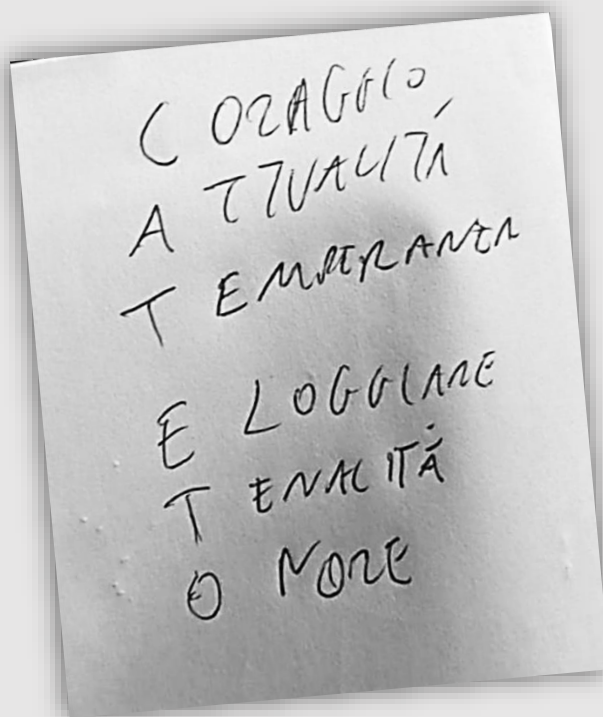 C ORAGGIO
A TTUALITÀ
T EMPERANZA
E LOGGIARE
T ENACITÀ
O NORE